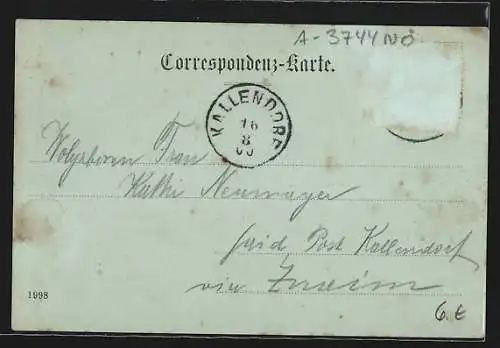 A-3744 NÖ
Correspondenz-Karte.
KALLENDORF
16
8
00
Wolgeboren Frau
Kathi Neumayer
Post Kallendorf
via Znaim
1998
6.€